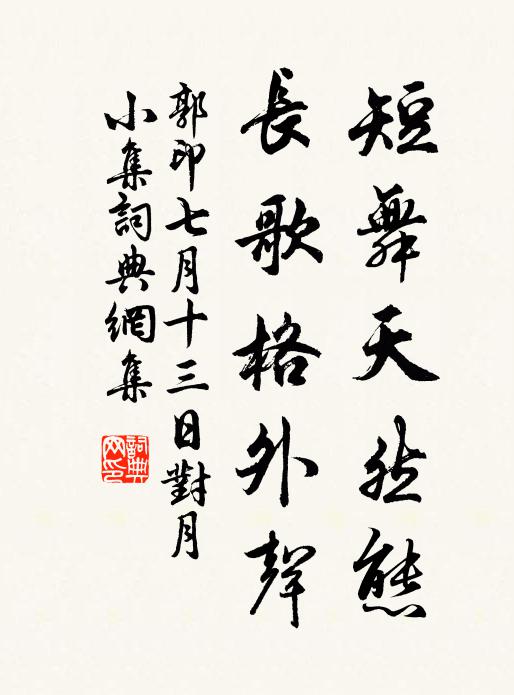 短舞天然態
長歌格外聲
郭印七月十三日對月
小集詞典網集
詞典网印